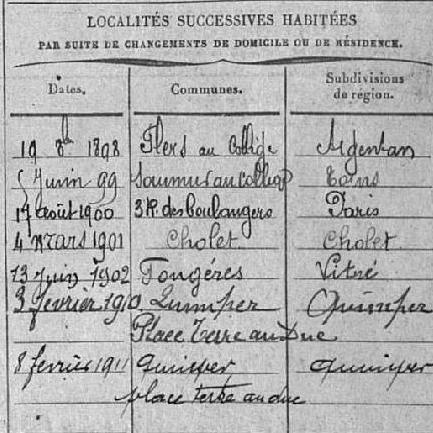 LOCALITÉS SUCCESSIVES HABITÉES
PAR SUITE DE CHANGEMENTS DE DOMICILE OU DE RÉSIDENCE.
Dates. Communes. Subdivisions de région.
19 8b 1898 Flers au Collège Argentan
5 Juin 99 Saumur au collège Tours
17 août 1900 3 R. des boulangers Paris
4 Mars 1901 Cholet Cholet
13 Juin 1902 Fougères Vitré
3 février 1910 Quimper Quimper
Place Terre au Duc
8 février 1911 Quimper Quimper
place terre au duc